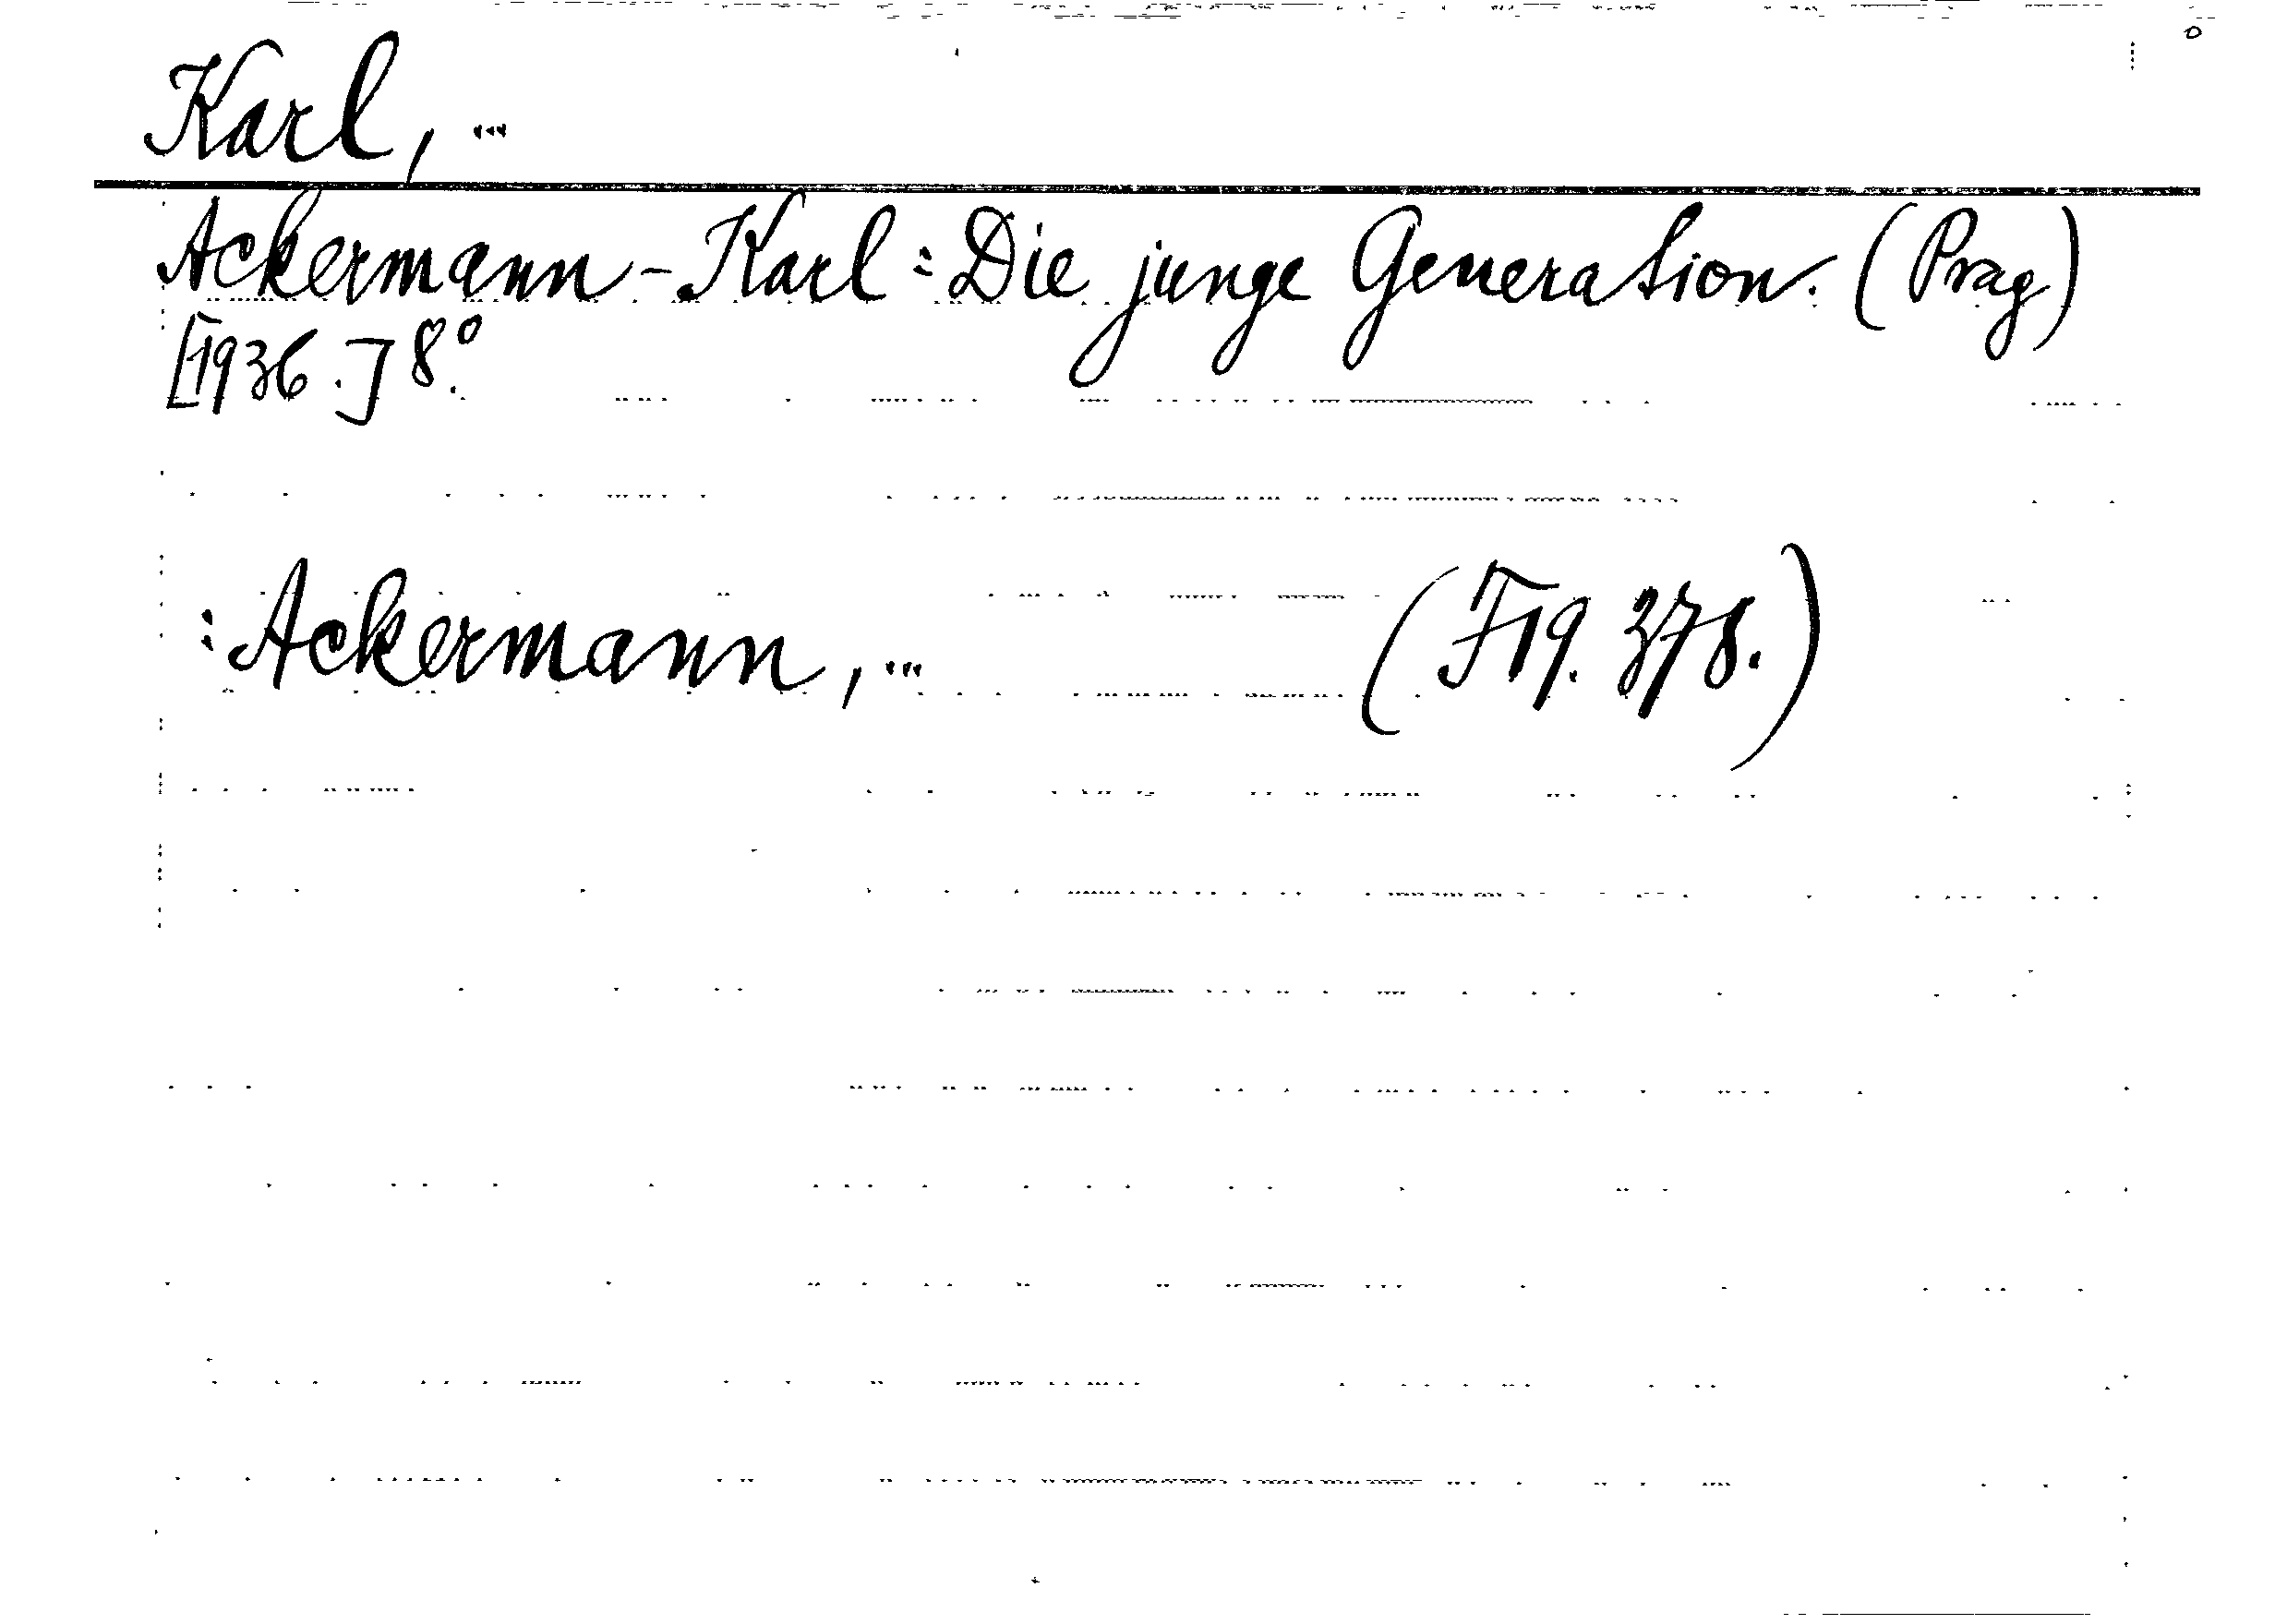 Karl, ...
Ackermann-Karl: Die junge Generation. (Prag)
[1936.] 8°.
: Ackermann, ... (F19. 378.)